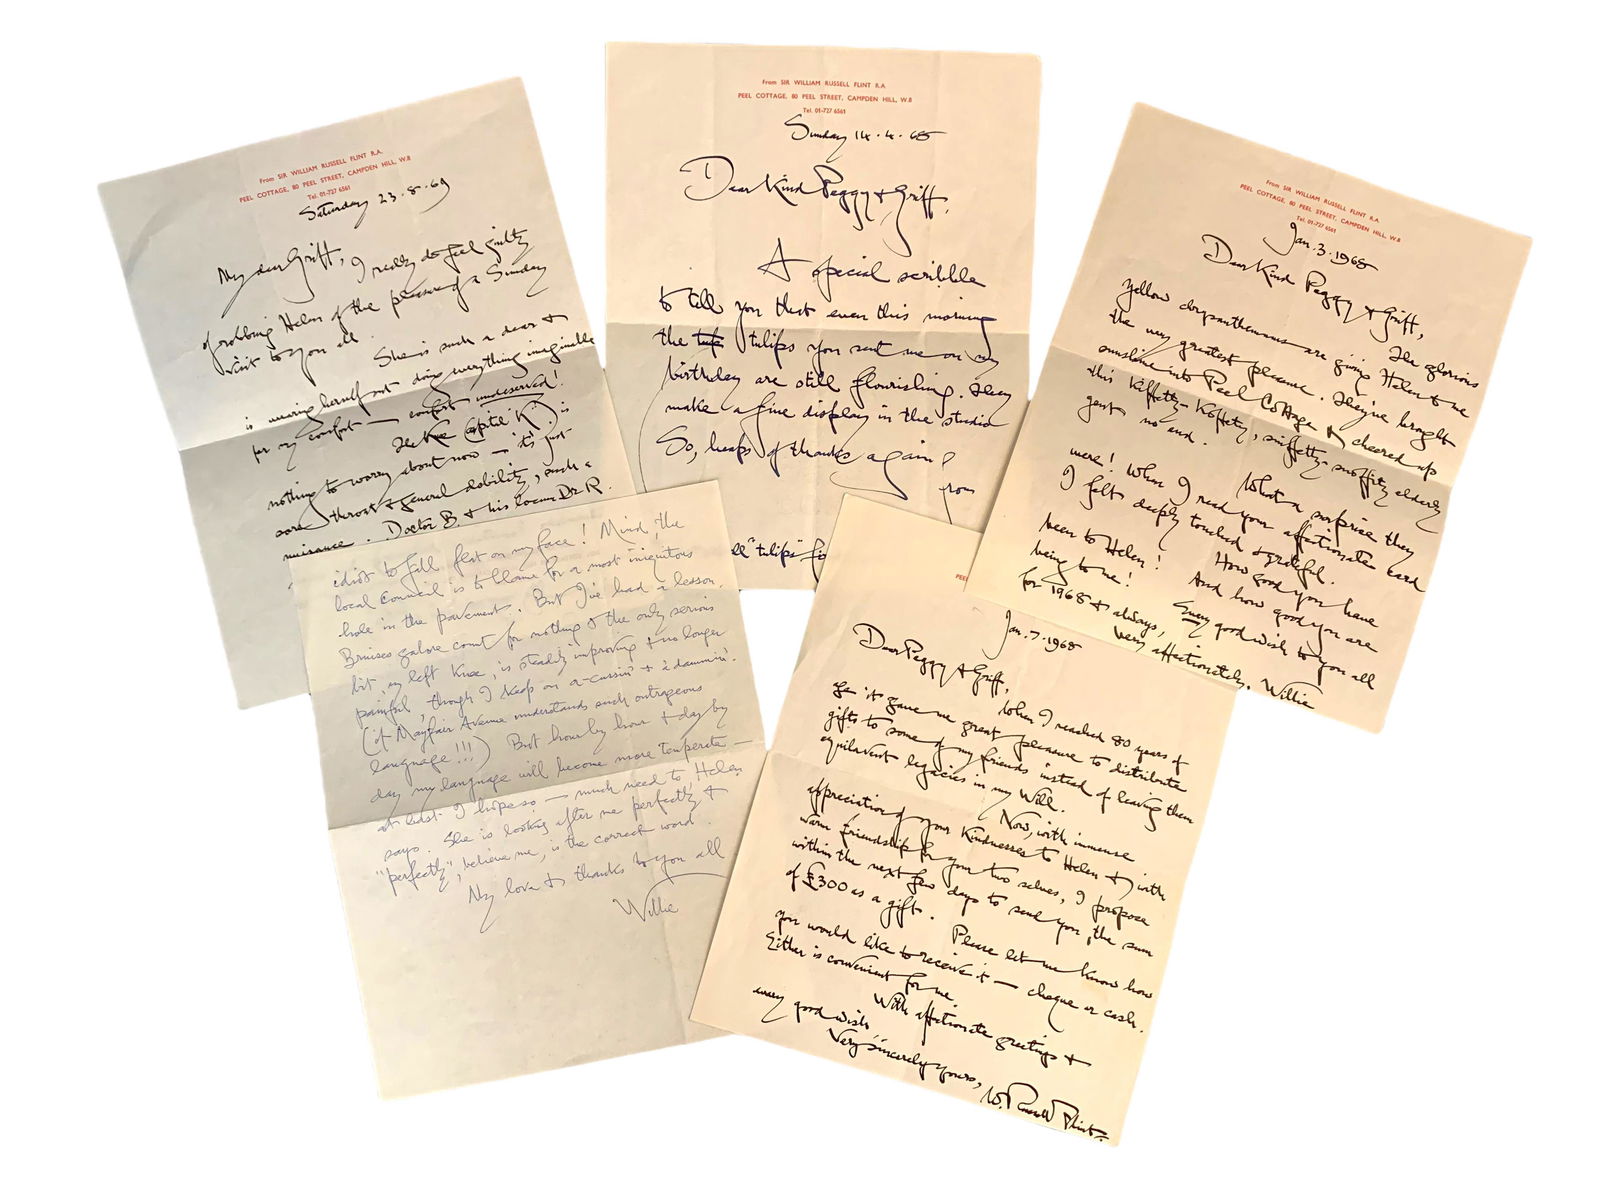 From SIR WILLIAM RUSSELL FLINT R.A.
PEEL COTTAGE, 80 PEEL STREET, CAMPDEN HILL, W.8
Tel. 01-727 6561
Saturday 23.8.69
My dear Griff, I really do feel guilty
of robbing Helen of the pleasure of a Sunday
visit to you all. She is such a dear &
is wearing herself out doing everything imaginable
for my comfort — comfort undeserved!
The Knee (capital K) is
nothing to worry about now — it's just
sore throat & general debility, such a
nuisance. Doctor B. & his locum Dr. R.
From SIR WILLIAM RUSSELL FLINT R.A
PEEL COTTAGE, 80 PEEL STREET, CAMPDEN HILL, W.8
Tel. 01-727 6561
Sunday 14.4.68
Dear Kind Peggy & Griff,
A special scribble
to tell you that even this morning
the tulips you sent me on my
birthday are still flourishing. They
make a fine display in the studio
So, heaps of thanks again!
from
"tulips"
From SIR WILLIAM RUSSELL FLINT R.A.
PEEL COTTAGE, 80 PEEL STREET, CAMPDEN HILL, W.8
Tel. 01-727 6561
Jan. 3. 1968
Dear Kind Peggy & Griff,
The glorious
yellow chrysanthemums are giving Helen & me
the very greatest pleasure. They've brought
sunshine into Peel Cottage & cheered up
this Kiffetty-Koffetty, sniffetty-snoffetty elderly
gent no end.
What a surprise they
were! When I read your affectionate card
I felt deeply touched & grateful.
How good you have
been to Helen! And how good you are
being to me!
Every good wish to you all
for 1968 & always,
very affectionately, Willie
idiot to fall flat on my face! Mind, the
local Council is to blame for a most iniquitous
hole in the pavement. But I've had a lesson.
Bruises galore count for nothing & the only serious
bit, my left Knee, is steadily improving & no longer
painful, though I keep on a-cussin' & a dammin'.
(if Mayfair Avenue understands such outrageous
language!!!) But hour by hour & day by
day my language will become more temperate —
at least I hope so — much need to Helen
says. She is looking after me perfectly &
"perfectly", believe me, is the correct word.
My love & thanks to you all
Willie
PEEL
Jan. 7. 1968
Dear Peggy & Griff,
When I reached 80 years of
age it gave me great pleasure to distribute
gifts to some of my friends instead of leaving them
equilavent legacies in my Will.
Now, with immense
appreciation of your Kindnesses to Helen & with
warm friendship for you two selves, I propose
within the next few days to send you the sum
of £300 as a gift.
Please let me know how
you would like to receive it — cheque or cash.
Either is convenient for me.
With affectionate greetings &
every good wish
Very sincerely yours,
W. Russell Flint